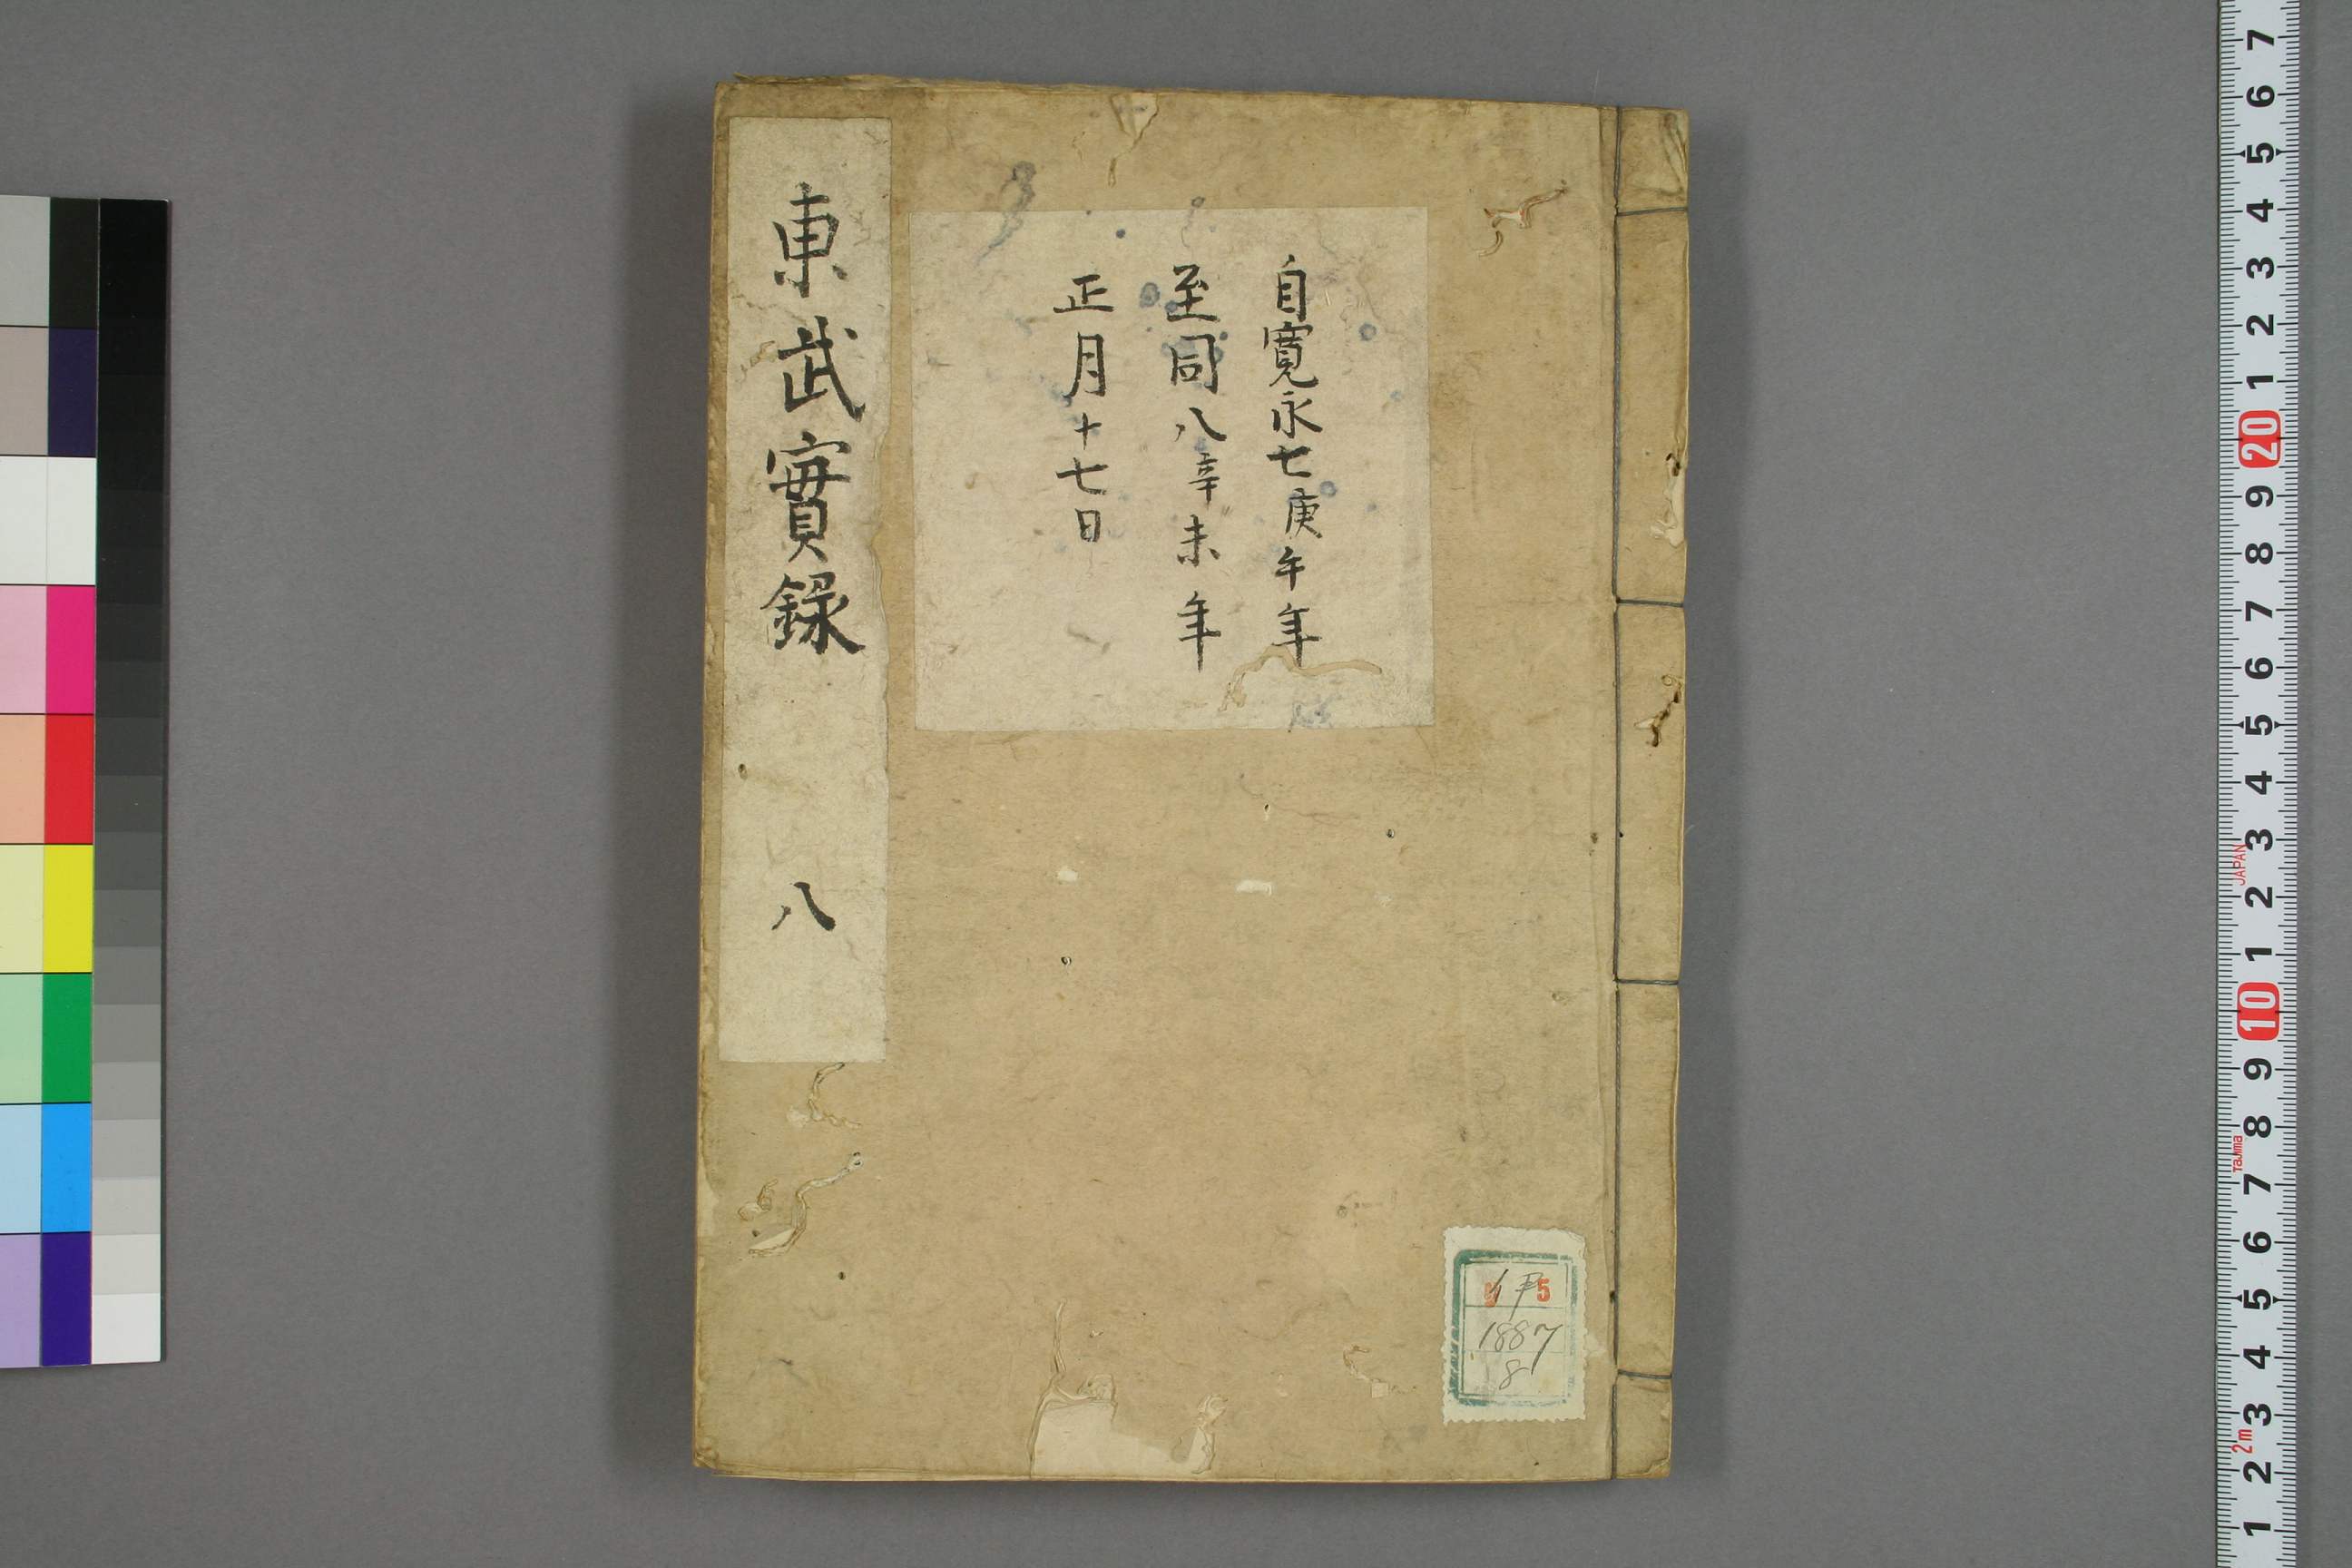 東武實録 八
自寛永七庚午年
至同八辛未年
正月十七日
5
1887
8
7
6
5
4
3
2
1
20
9
8
7
6
5
4
3
2
1
10
9
8
7
6
5
4
3
2
1
JAPAN
Tajima
2m